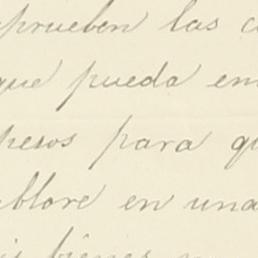 prueben las c
que pueda en
pesos para q
ablore en una
is bienes